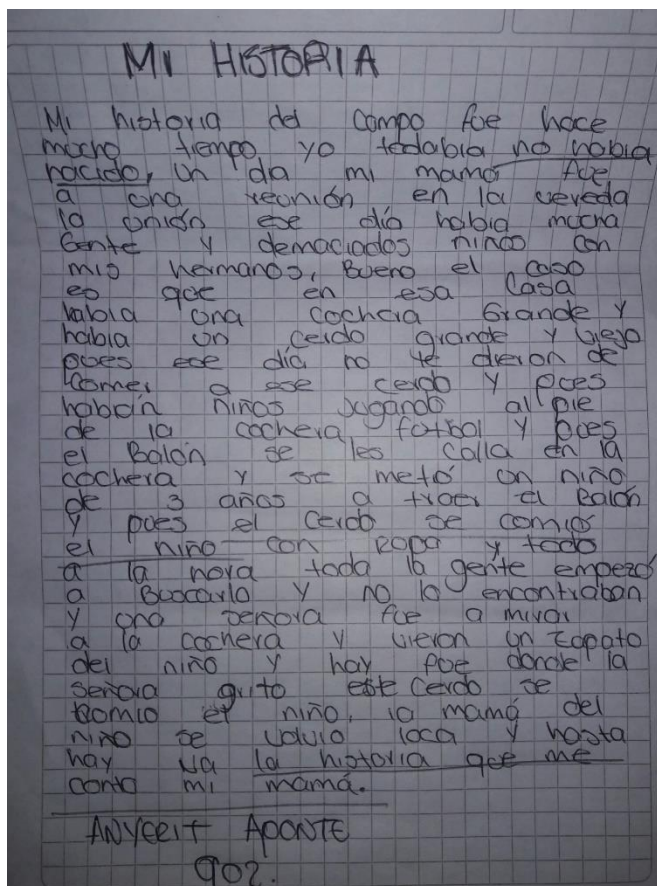 MI HISTORIA
Mi historia del campo fue hace
mucho tiempo yo todabia no habia
nacido, un dia mi mamá fue
a una reunión en la vereda
la unión ese día habia mucha
Gente y demaciados niños con
mis hermanos, Bueno el caso
es que en esa Casa
habia una cochera Grande y
habia un cerdo grande y viejo
pues ese día no le dieron de
comer a ese cerdo y pues
habian niños jugando al pie
de la cochera futbol y pues
el Balón se les callo en la
cochera y se metió un niño
de 3 años a traer el Balón
y pues el cerdo se comio
el niño con ropa y todo
a la hora toda la gente empezó
a Buscarlo y no lo encontraban
y una persona fue a mirar
a la cochera y vieron un zapato
del niño y hay fue donde la
señora grito este cerdo se
comio el niño, la mamá del
niño se volvio loca y hasta
hay va la historia que me
conto mi mamá.
ANYERIT APONTE
902.